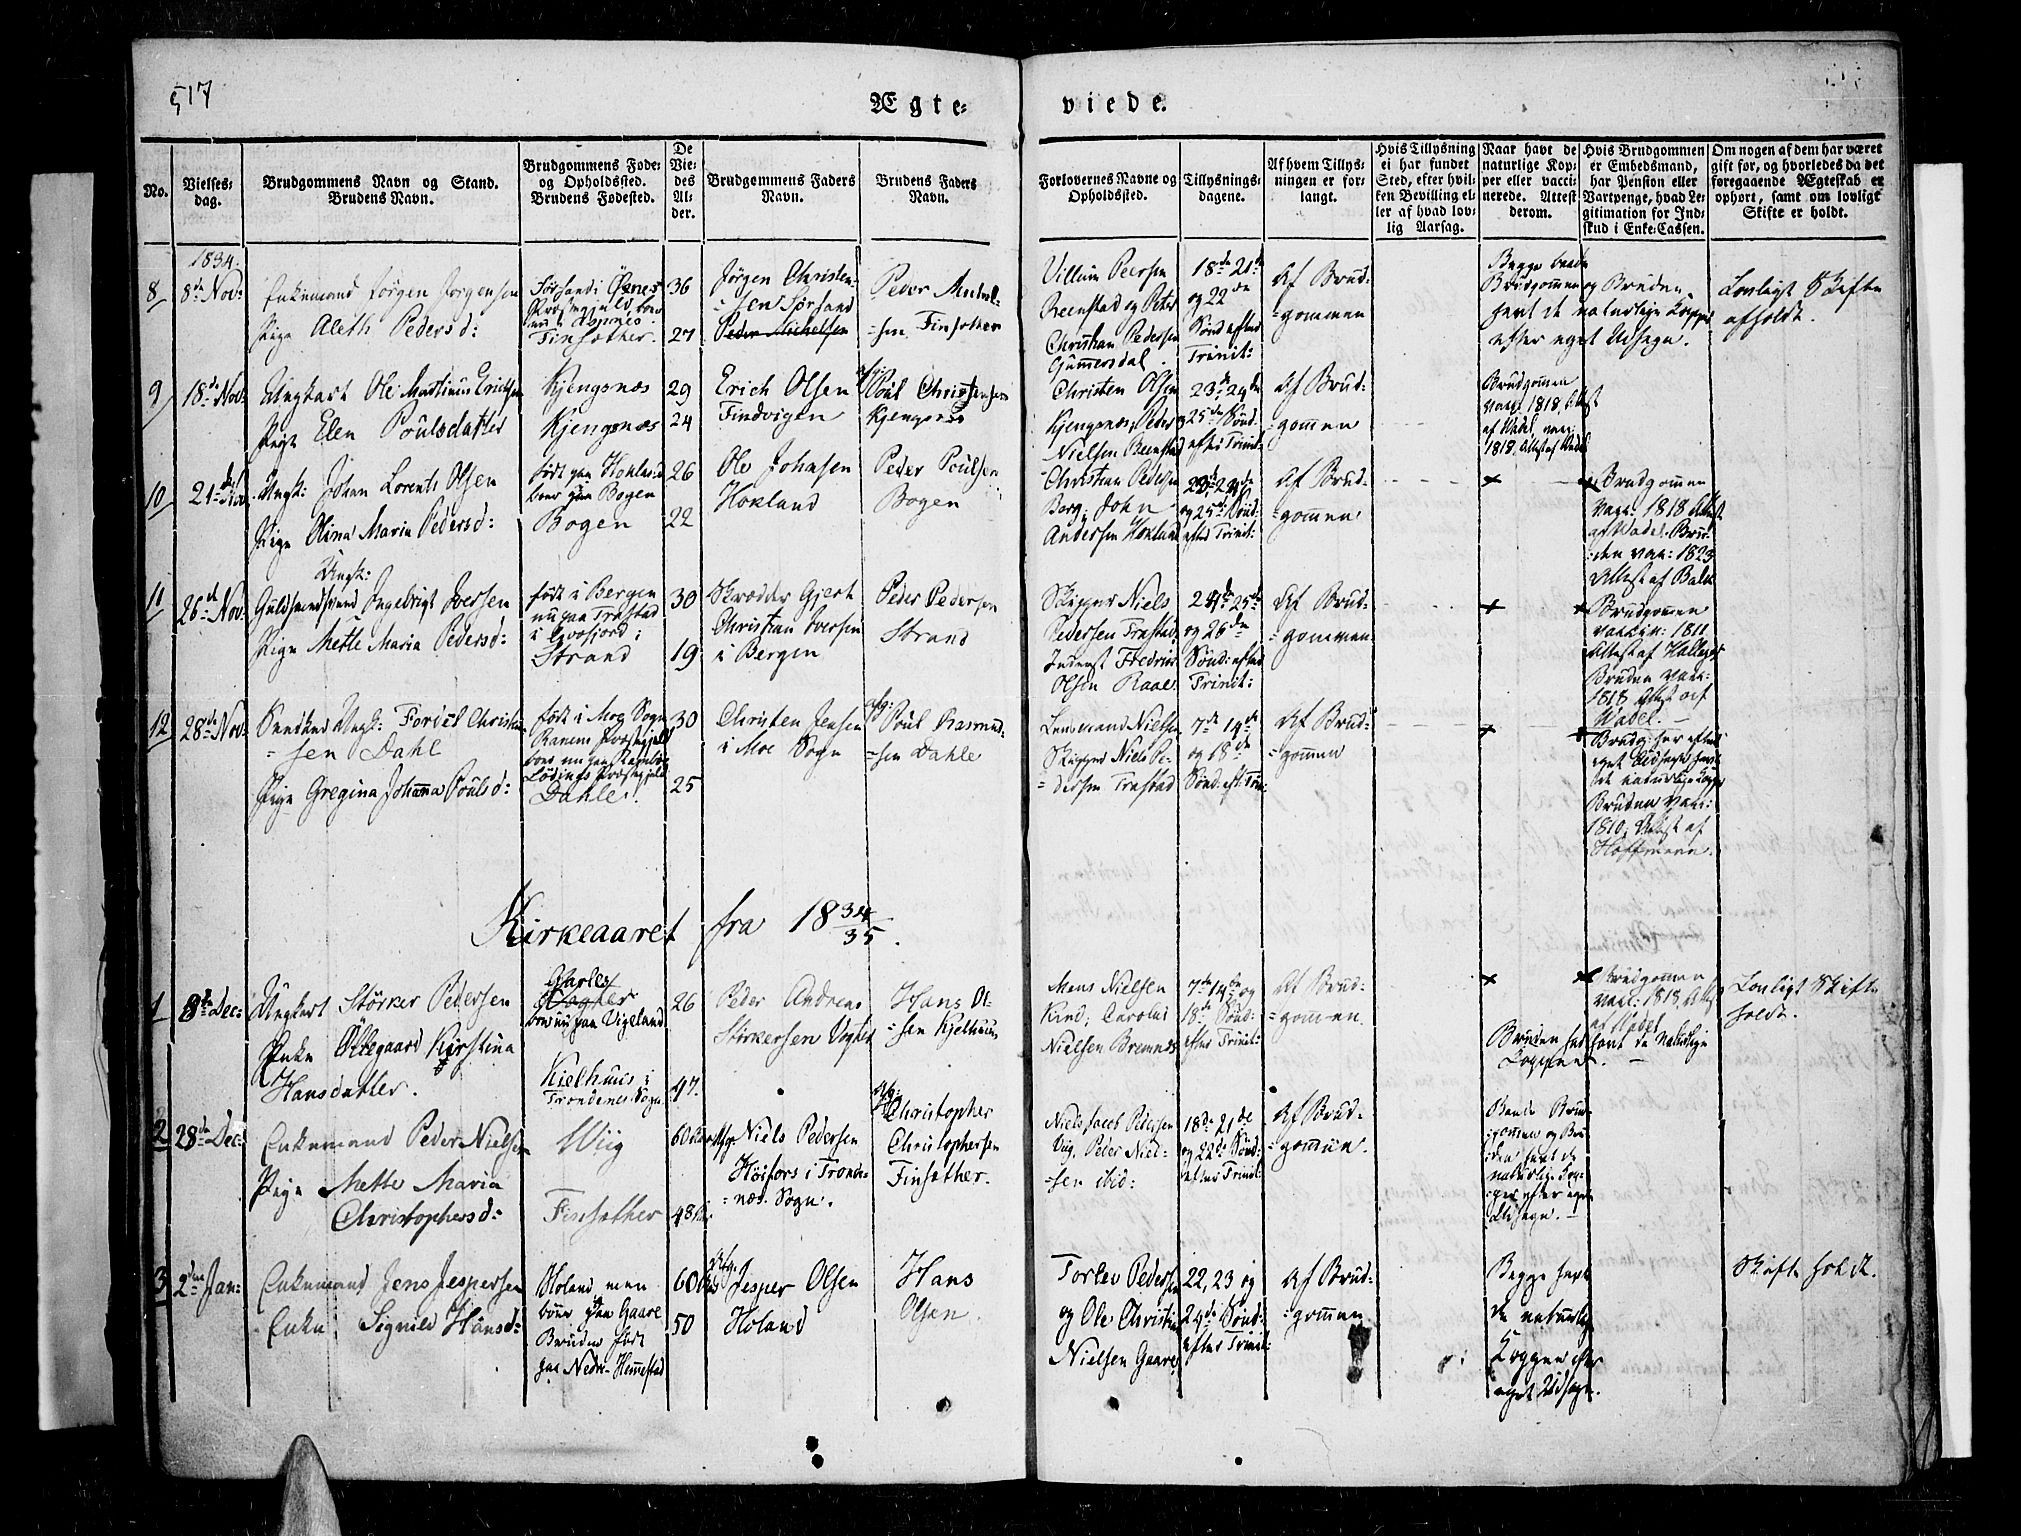 517
Ægte=
viede.
No.
Vielses=
dag.
Brudgommens Navn og Stand.
Brudens Navn.
Brudgommens Føde=
og Opholdssted.
Brudens Fødested.
De
Vie=
des
Al=
der.
Brudgommens Faders
Navn.
Brudens Faders
Navn.
Forlovernes Navne og
Opholdssted.
Tillysnings=
dagene.
Af hvem Tillys=
ningen er for=
langt.
Hvis Tillysning
ei har fundet
Sted, efter hvil=
ken Bevilling el=
ler af hvad lov=
lig Aarsag.
Naar havt de
naturlige Kop=
per eller vacci=
nerede. Attest
derom.
Hvis Brudgommen
er Embedsmand,
har Pension eller
Vartpenge, hvad Le=
gitimation for Ind=
skud i Enke-Cassen.
Om nogen af dem har været
gift før, og hvorledes da det
foregaaende Ægteskab er
ophørt, samt om lovligt
Skifte er holdt.
1834.
8
8de Nov:
Enkemand Jørgen Jørgensen
Pige Aleth Pedersd:
Finsæther.
36
27
Jørgen Christen=
=sen Sørsand
Peder Michelsen
Peder Michel=
=sen Finsæther
Villum Peersen
Reenstad og Peter
Christian Pedersen
Gummersdal.
18de 21de
og 22de
Sønd: efter
Trinit:
Af Brud=
=gommen
Begge baade
Brudgommen og Bruden
havt de naturlige Kopper
efter eget Udsagn.
Lovligt Skifte
afholdt.
9
18de Nov:
Ungkarl Ole Martinus Erichsen
Pige Elen Poulsdatter
Kjengsnæs
Kjengsnæs
29
24
Erich Olsen
Findvigen
Poul Christensen
Kjengsnæs
Christen Olsen
Kjengsnæs, Peder
Nielsen Reenstad
23de 24de
25de Sønd:
efter Trinit:
Af Brud=
=gommen
Brudgommen
vacc: 1818, Attest
af Wadel, vacc:
1818, Attest af Wadel
10
21de Nov:
Ungk: Johan Lorents Olsen
Pige Olina Maria Pedersd:
født paa Hokland
boer paa Bogen
Bogen
26
22
Ole Johnsen
Hokland
Peder Poulsen
Bogen
Christian Pedersen
Berg, John
Andersen Hokland
23de 24de
og 25de Sønd:
efter Trinit:
Af Brud=
=gommen
Brudgommen
vacc: 1818 Attest
af Wadel. Bru=
=den vacc: 1823
Attest af
11
26de Nov:
Ungk:
Guldsmedsvend Ingebrigt Iversen
Pige Mette Maria Pedersd:
født i Bergen
nu paa Trastad
i Qvæfjord;
Strand
30
19
Skræder Gjert
Christian Iversen
i Bergen
Peder Pedersen
Strand
Skipper Niels
Pedersen Trastad,
Inderst Fredrik
Olsen Raae.
24de 25de
og 26de
Sønd: efter
Trinit:
Af Brud=
=gommen
Brudgommen
vaccin: 1811
Attest af
Bruden vacc:
1818 Attest af
Wadel.
12
28de Nov:
Ungk: Christian=
=sen Dahl
Pige Gregina Johanna Poulsd:
født i Moe Sogn
Ranens Præstegjeld
boer nu paa
Lødings Præstegjeld
Dahle.
30
25
Christen Jensen
i Moe Sogn
Poul Rasmus=
=sen Dahle
Lensmand Nielsen
Skipper Niels Pe=
=dersen Trastad
7de 14de
og 18de
Sønd: eft: Trin:
Af Brud=
=gommen
Brudg: har efter
eget Udsagn havt
de naturlige Kopper
Bruden vacc:
1810, Attest af
Hoffmann.
Kirkeaaret fra 1834/35.
1
8de Dec:
Ungkarl Størker Pedersen
Enke Oltegaard Kirstina
Hansdatter.
boer nu paa Vigeland
Kjelhuus i
Trondenes Sogn
26
47.
Peder Andreas
Størkersen Vogter
Hans Ol=
=sen Kjelhuus
Mons Nielsen
Kind; Carolus
Nielsen Bremnes
7de 14de og
18de Sønd:
efter Trinit:
Af Brud=
=gommen.
Brudgommen
vacc: 1818, Attest
af Wadel
Bruden har havt de naturlige
Kopper.
Lovligt Skifte
holdt.
2
28de Dec:
Enkemand Peder Nielsen
Pige Mette Maria
Christophersd:
Wiig
Finsæther
60
48
Niels Pedersen
Høifors i Tronde=
=næs Sogn.
Christopher
Christophersen
Finsæther.
Niels Jacob Pedersen
Viig, Peter Niel=
=sen ibid:
18de 21de
og 22de Sønd:
efter Trinit:
Af Brud=
=gommen.
Baade Brud=
gommen og Bru=
den havt de
naturlige Kop=
per efter eget
Udsagn.
3
2den Jan:
Enkemand Jens Jespersen
Enke Signild Hansd:
Holand men
boer paa Gaare
Bruden født
paa Nedre-Hemmestad
60
50
Jesper Olsen
Holand
Hans
Olsen.
Torlev Pedersen
og Ole Christian
Nielsen Gaare
22, 23 og
24de Sønd:
efter Trinit:
Af Brud=
=gommen
Begge havt
de naturlige
Kopper efter
eget Udsagn.
Skifte holdt.